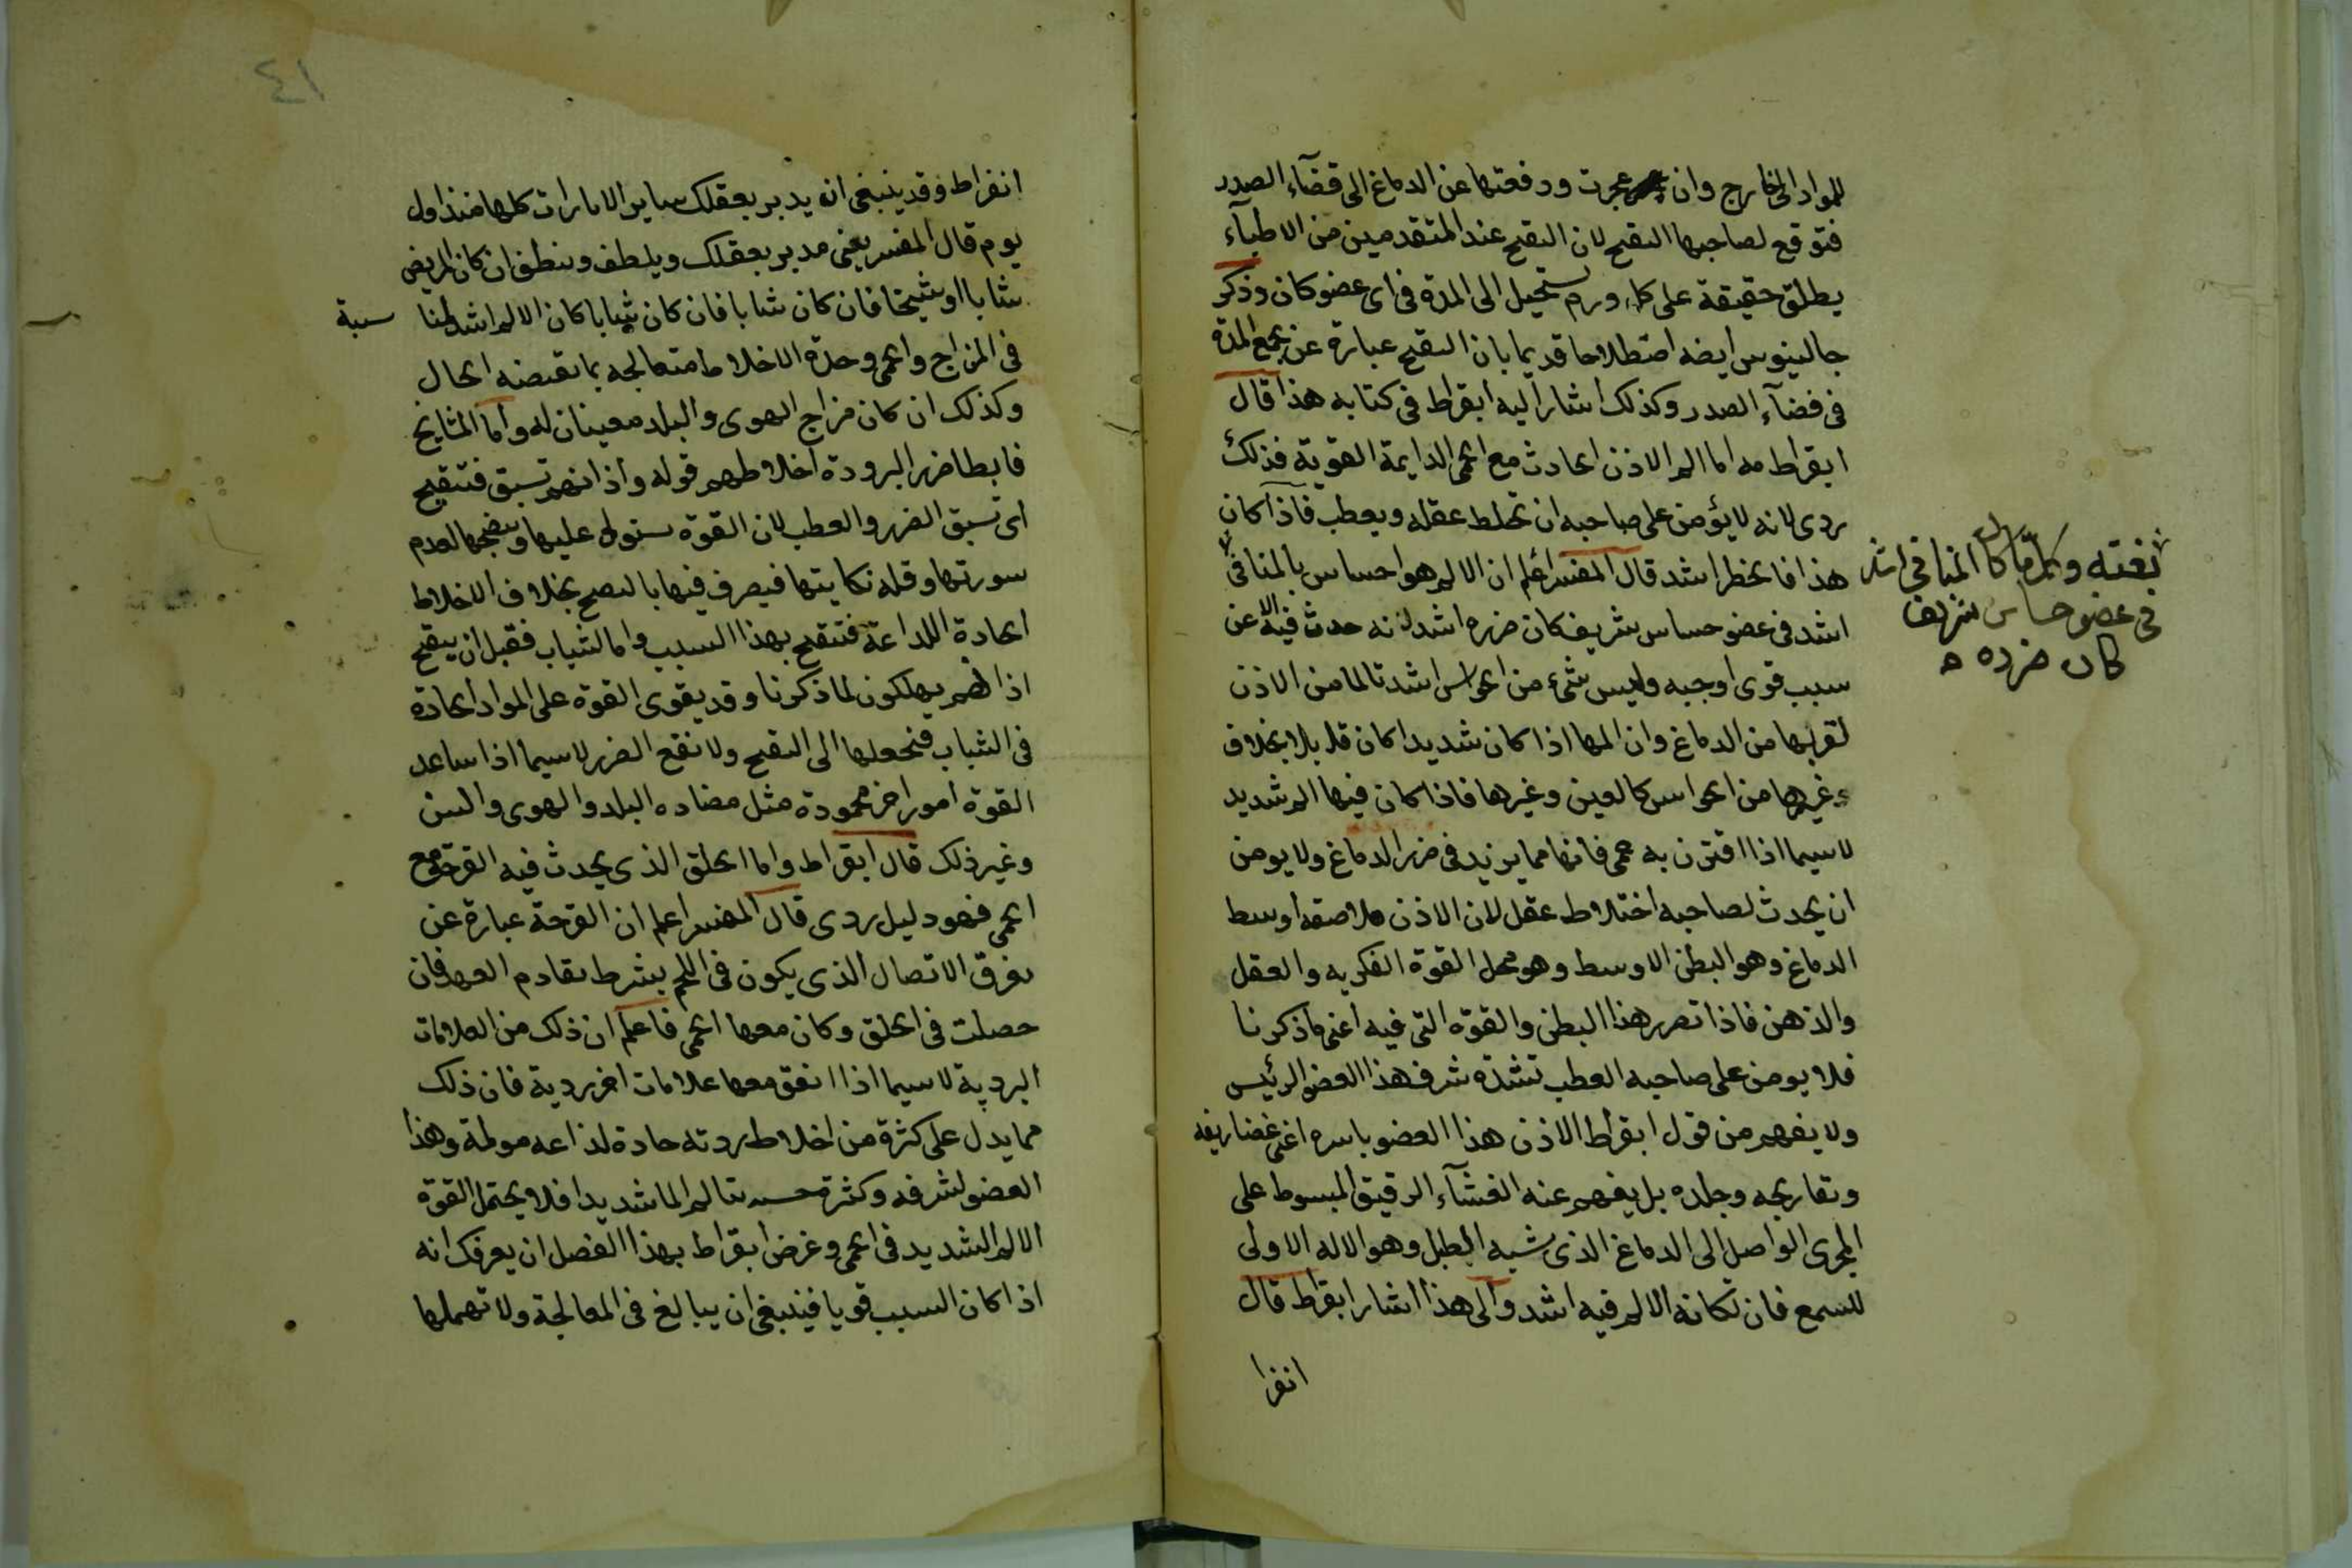 للمواد الى الخارج وان عجزت ودفعتها عن الدماغ الى فضآء الصدر
فتوقع لصاحبها التقيح لان التقيح عند المتقدمين من الاطبآء
يطلق حقيقة على كل ورم يستحيل الى المدة فى اى عضو كان وذكر
جالينوس ايضه اصطلاحا قديما بان التقيح عبارة عن تجمع المدة
فى فضآء الصدر وكذلك اشار اليه ابقراط فى كتابه هذا قال
ابقراط مه اما الم الاذن الحادث مع الحمى الدايمة القوية فذلك
ردى لانه لا يؤمن على صاحبه ان تخلط عقله ويعطب فاذا كان
هذا فالخطر اشد قال المفسر اعلم ان الالم هو احساس بالمنافى
بغته وكلما كان المنافى اشد
فى عضو حساس شريف
كان ضرره
اشد فى عضو حساس شريف كان ضرره اشد لانه حدث فيه الا عن
سبب قوى اوجبه وليس شئ من الحواس اشد تالما من الاذن
لقربها من الدماغ وان المها اذا كان شديدا كان قلا بلا بخلاف
وغيرها من الحواس كالعين وغيرها فاذا كان فيها الم شديد
لاسيما اذا اقترن به حمى فانها مما يزيد فى ضرر الدماغ ولا يومن
ان يحدث لصاحبه اختلاط عقل لان الاذن ملاصقة اوسط
الدماغ وهو البطن الاوسط وهو محل القوة الفكريه والعقل
والذهن فاذا تضرر هذا البطن والقوة التى فيه اعنى ما ذكرنا
فلا يومن على صاحبه العطب لشدة شرف هذا العضو الرئيس
ولا يفهم من قول ابقراط الاذن هذا العضو باسره اعنى غضاريفه
وتعاريجه وجلده بل يفهم عنه الغشآء الرقيق المبسوط على
المجرى الواصل الى الدماغ الذى شبه الطبل وهو الاله الاولى
للسمع فان نكانه الالم فيه اشد والى هذا اشار ابقراط قال
انفرا
٤١
انفراط وقد ينبغى ان يدبر بعقلك ساير الامارات كلها منذ اول
يوم قال المفسر يعنى مدبر بعقلك ويلطف وينظف ان كان المريض
شابا او شيخا فان كان شابا فان كان شابا كان الالم اشد لمنا سبة
فى المزاج والحمى وحدة الاخلاط فتعالجه بما تقتضيه الحال
وكذلك ان كان مزاج الهوى والبلد معينان له واما المشايخ
فابطا ضرر البرودة اخلاطهم قوله واذانهم تسبق فتتقيح
اى تسبق الضرر والعطب لان القوة ستولى عليها وينضجها لعدم
سورتها وقلة نكايتها فيصرف فيها بالنضج بخلاف الاخلاط
الحادة اللداعة فتتقيح بهذا السبب واما الشباب فقبل ان يتقيح
اذانهم يهلكون لما ذكرنا وقد يقوى القوة على المواد الحادة
فى الشباب فتجعلها الى التقيح ولا نقع الضرر لاسيما اذا ساعد
القوة امور اخر محمودة مثل مضاده البلد والهوى والسن
وغير ذلك قال ابقراط واما الحلق الذى يحدث فيه القرحة مع
الحمى فهو دليل ردى قال المفسر اعلم ان القرحة عبارة عن
تفرق الاتصال الذى يكون فى اللحم بشرط تقادم العهد فان
حصلت فى الحلق وكان معها الحمى فاعلم ان ذلك من العلامات
الردية لاسيما اذا اتفق معها علامات اخر ردية فان ذلك
مما يدل على كثرة من اخلاط ردئه حادة لذاعه مولمة وهذا
العضو لشرفه وكثرة حسه يتالم الما شديدا فلا يحتمل القوة
الالم الشديد فى الحمى وغرض ابقراط بهذا الفصل ان يعرفك انه
اذا كان السبب قويا فينبغى ان يبالغ فى المعالجة ولا تهملها